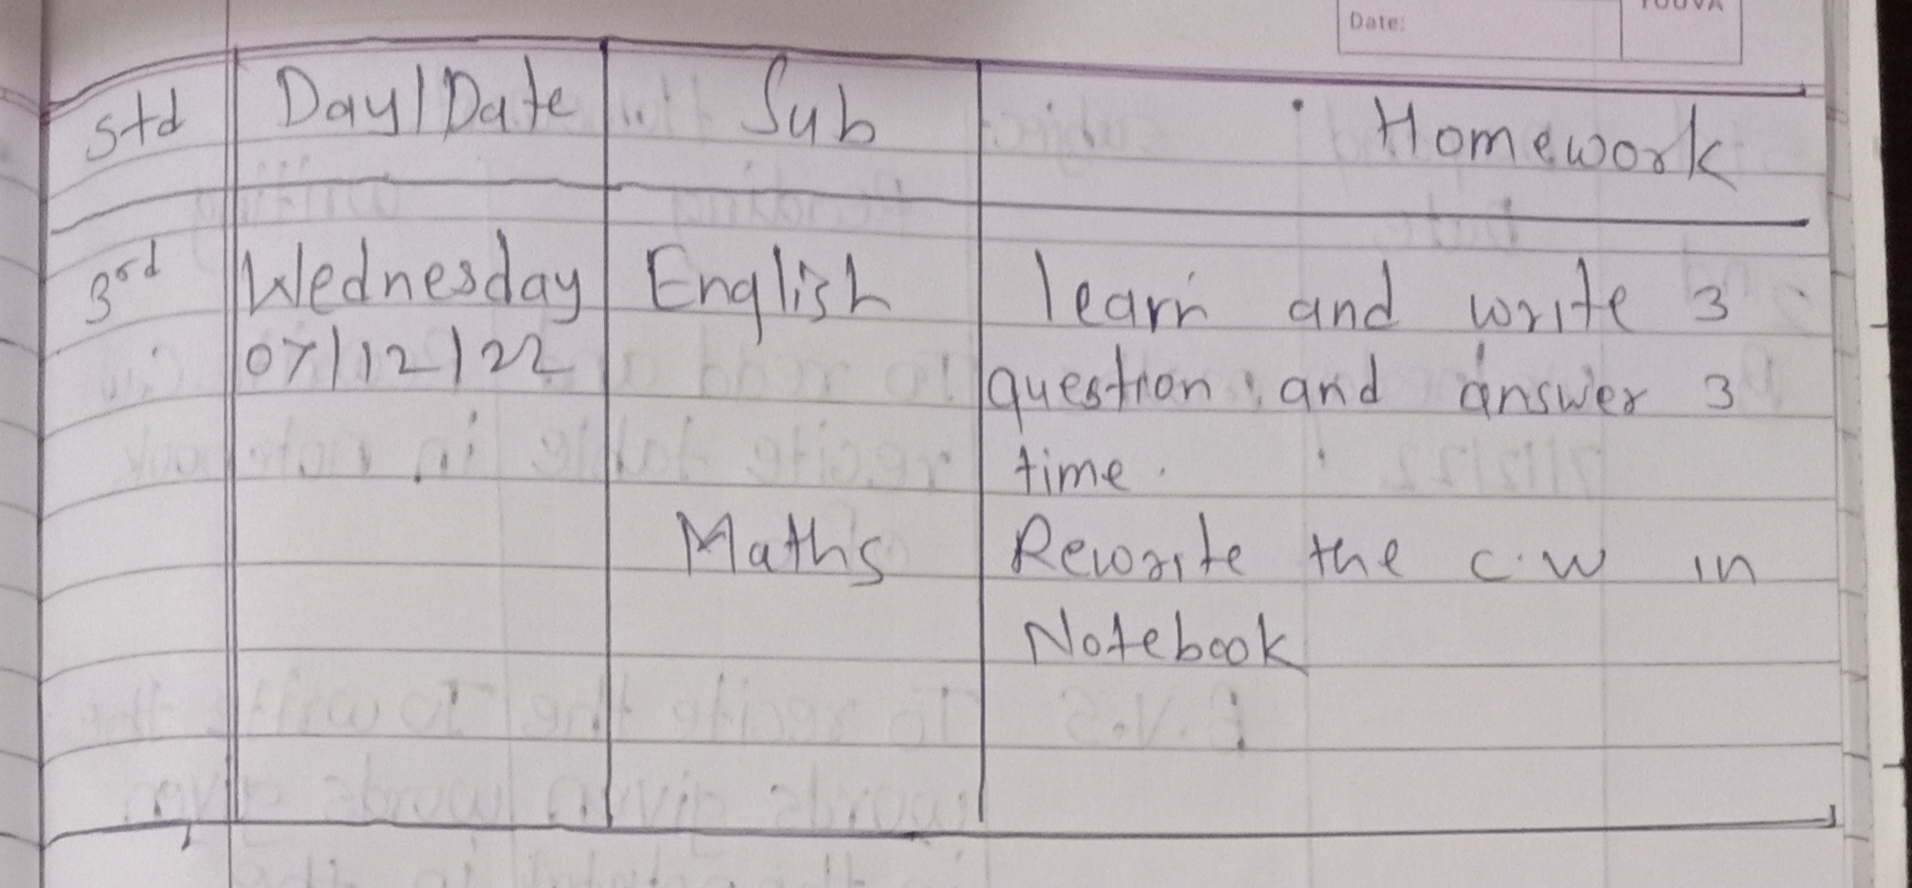 Date:
YOUVA
Std Day/Date Sub Homework
3rd Wednesday English learn and write 3
07/12/22 question and answer 3
time.
Maths Rewrite the c.w in
Notebook